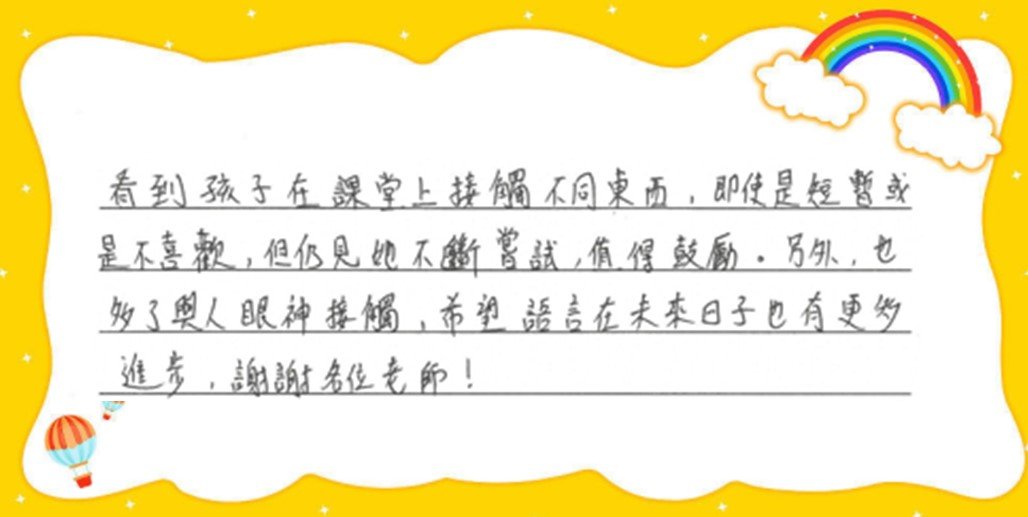 看到孩子在課堂上接觸不同東西，即使是短暫或
是不喜歡，但仍見她不斷嘗試，值得鼓勵。另外，也
多了與人眼神接觸，希望語言在未來日子也有更多
進步，謝謝各位老師！